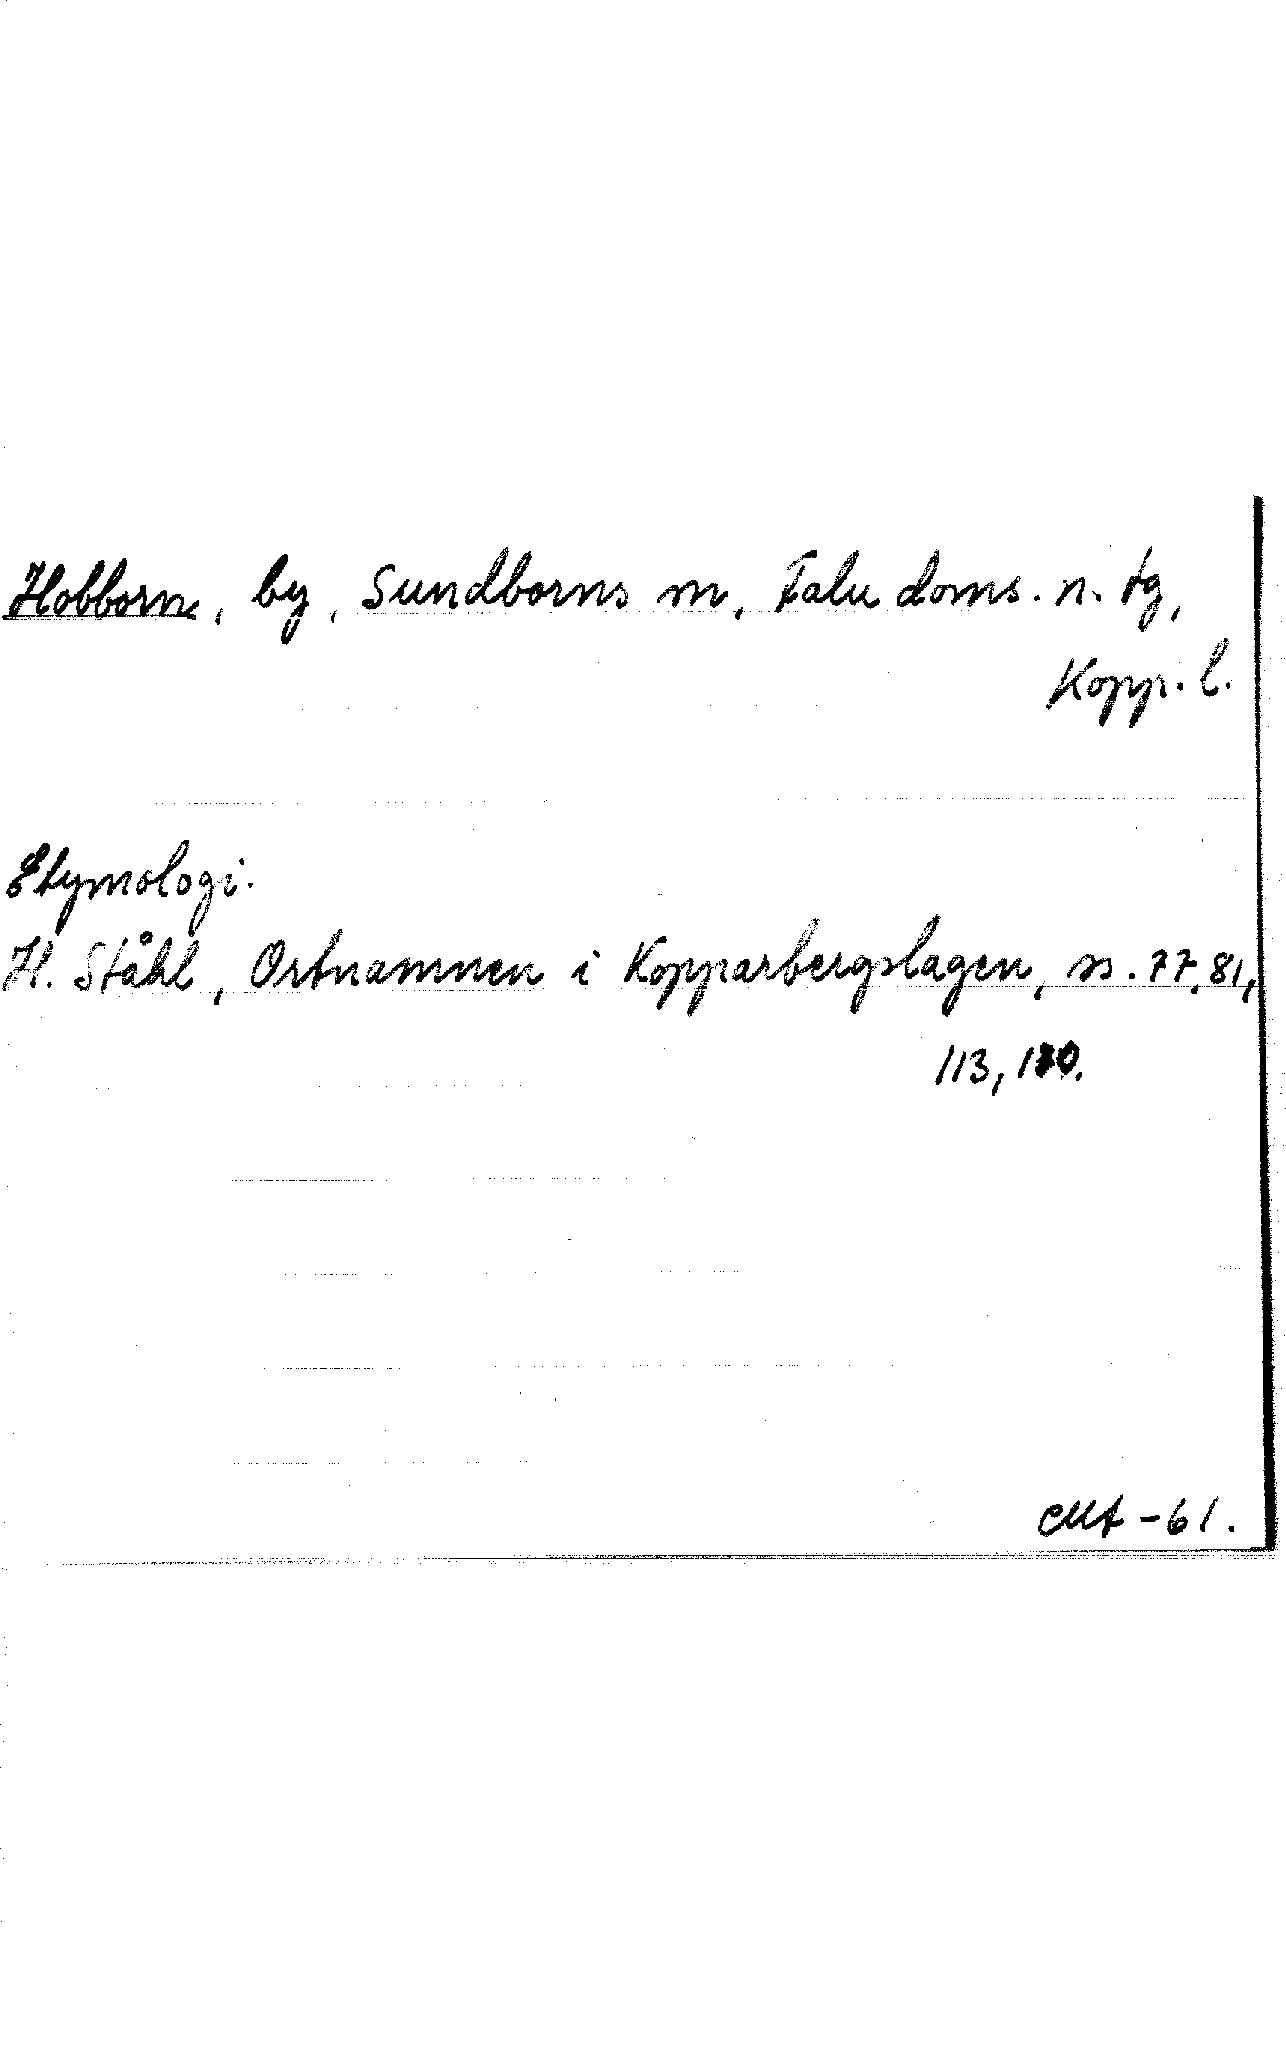 Hobborn, by, Sundborns sn, Falu doms. n. tg,
Kopp. l.
Etymologi.
H. Ståhl, Ortnamnen i Kopparbergslagen, ss. 77, 81,
113,
-61.